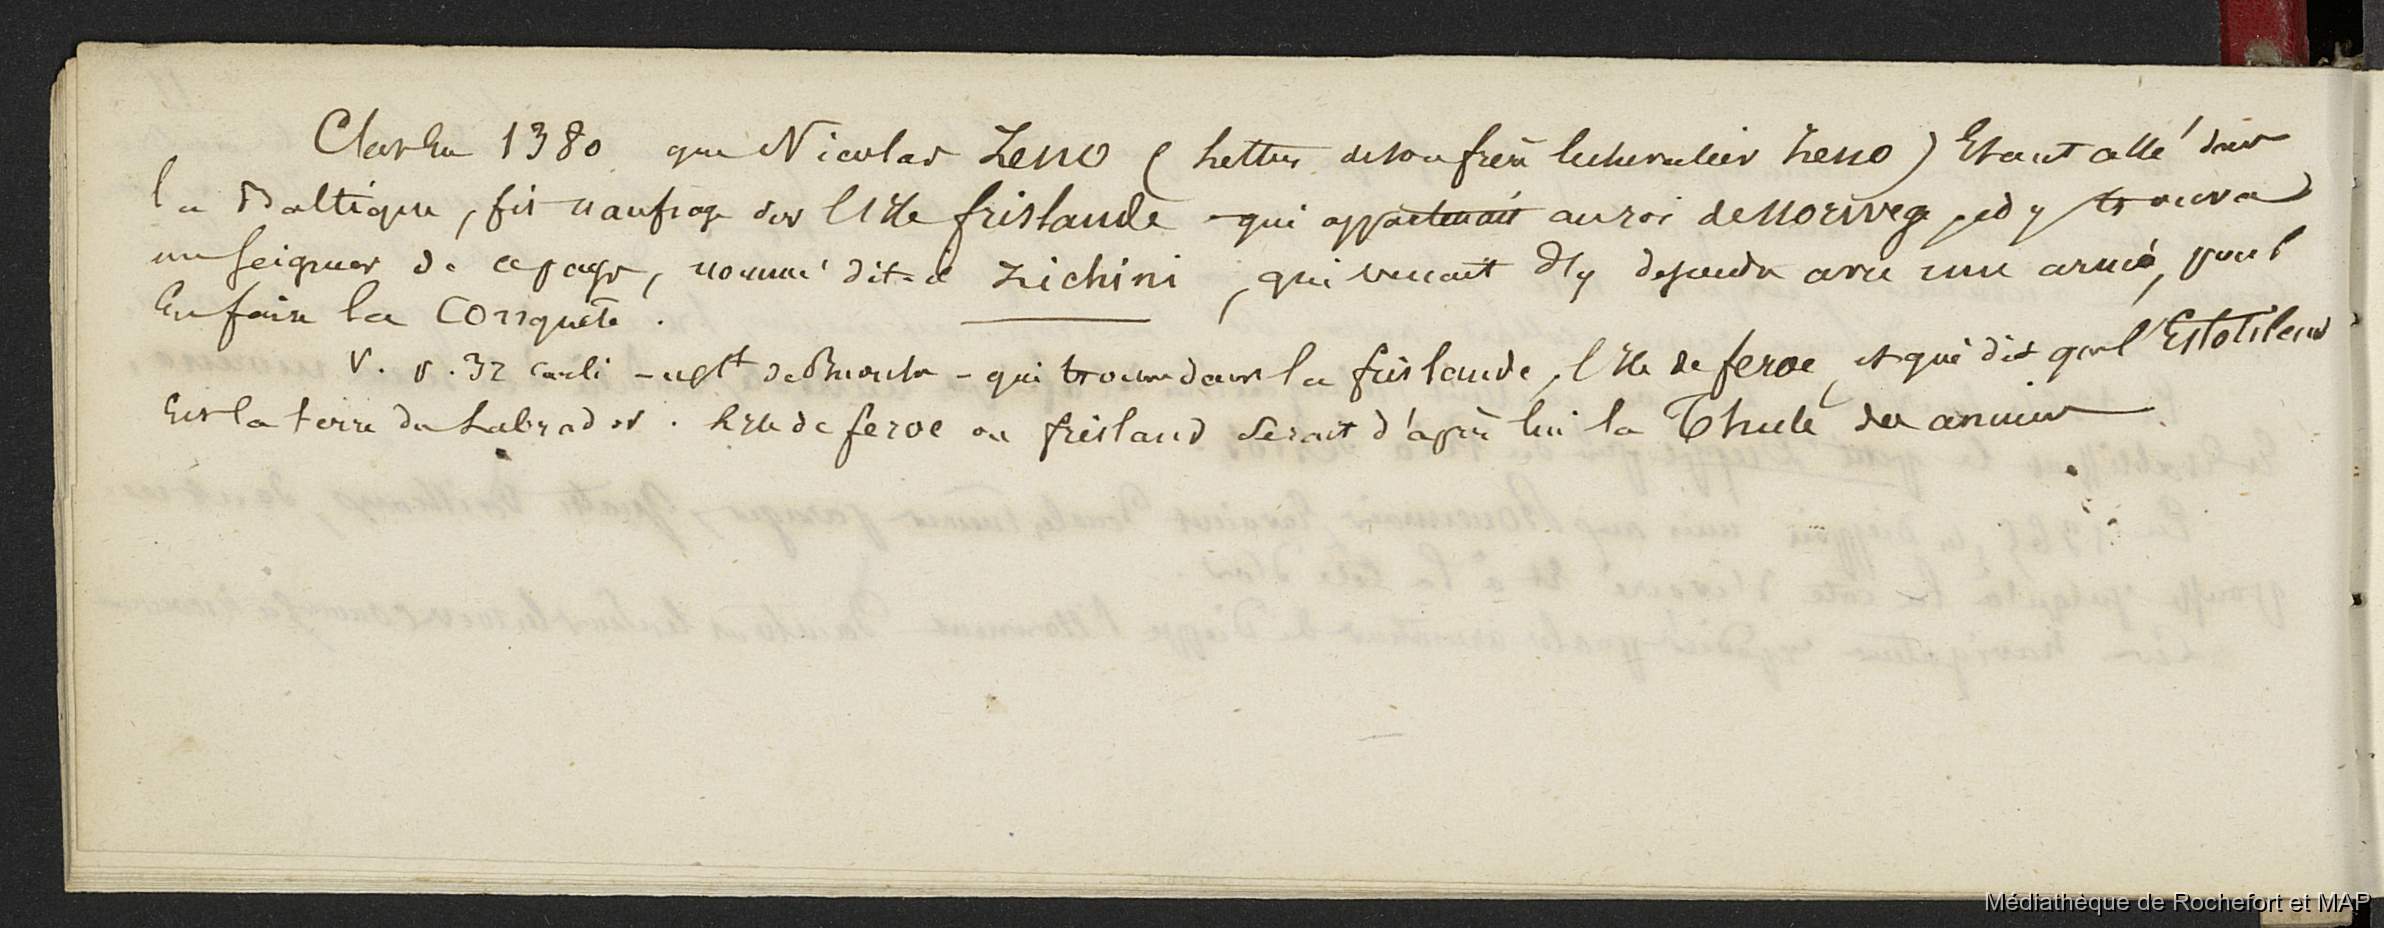 C'est en 1380 que Nicolas Zeno (Lettres de son frère le chevalier Zeno) Etant allé dans
la Baltique, fit naufrage sur l'Isle frislande qui appartenait au roi de Norwege, il y trouva
un seigneur de ce pays, nommé dit-il Zichini, qui venait d'y descendre avec une armée, pour
En faire la Conquête.
V. p. 32 carli - de Buache - qui trouve dans la frislande, l'Isle de feroe, et qui dit que l'Estotiland
Est la terre du Labrador. L'Isle de feroe ou frisland serait d'après lui la Thulé des anciens
Médiathèque de Rochefort et MAP